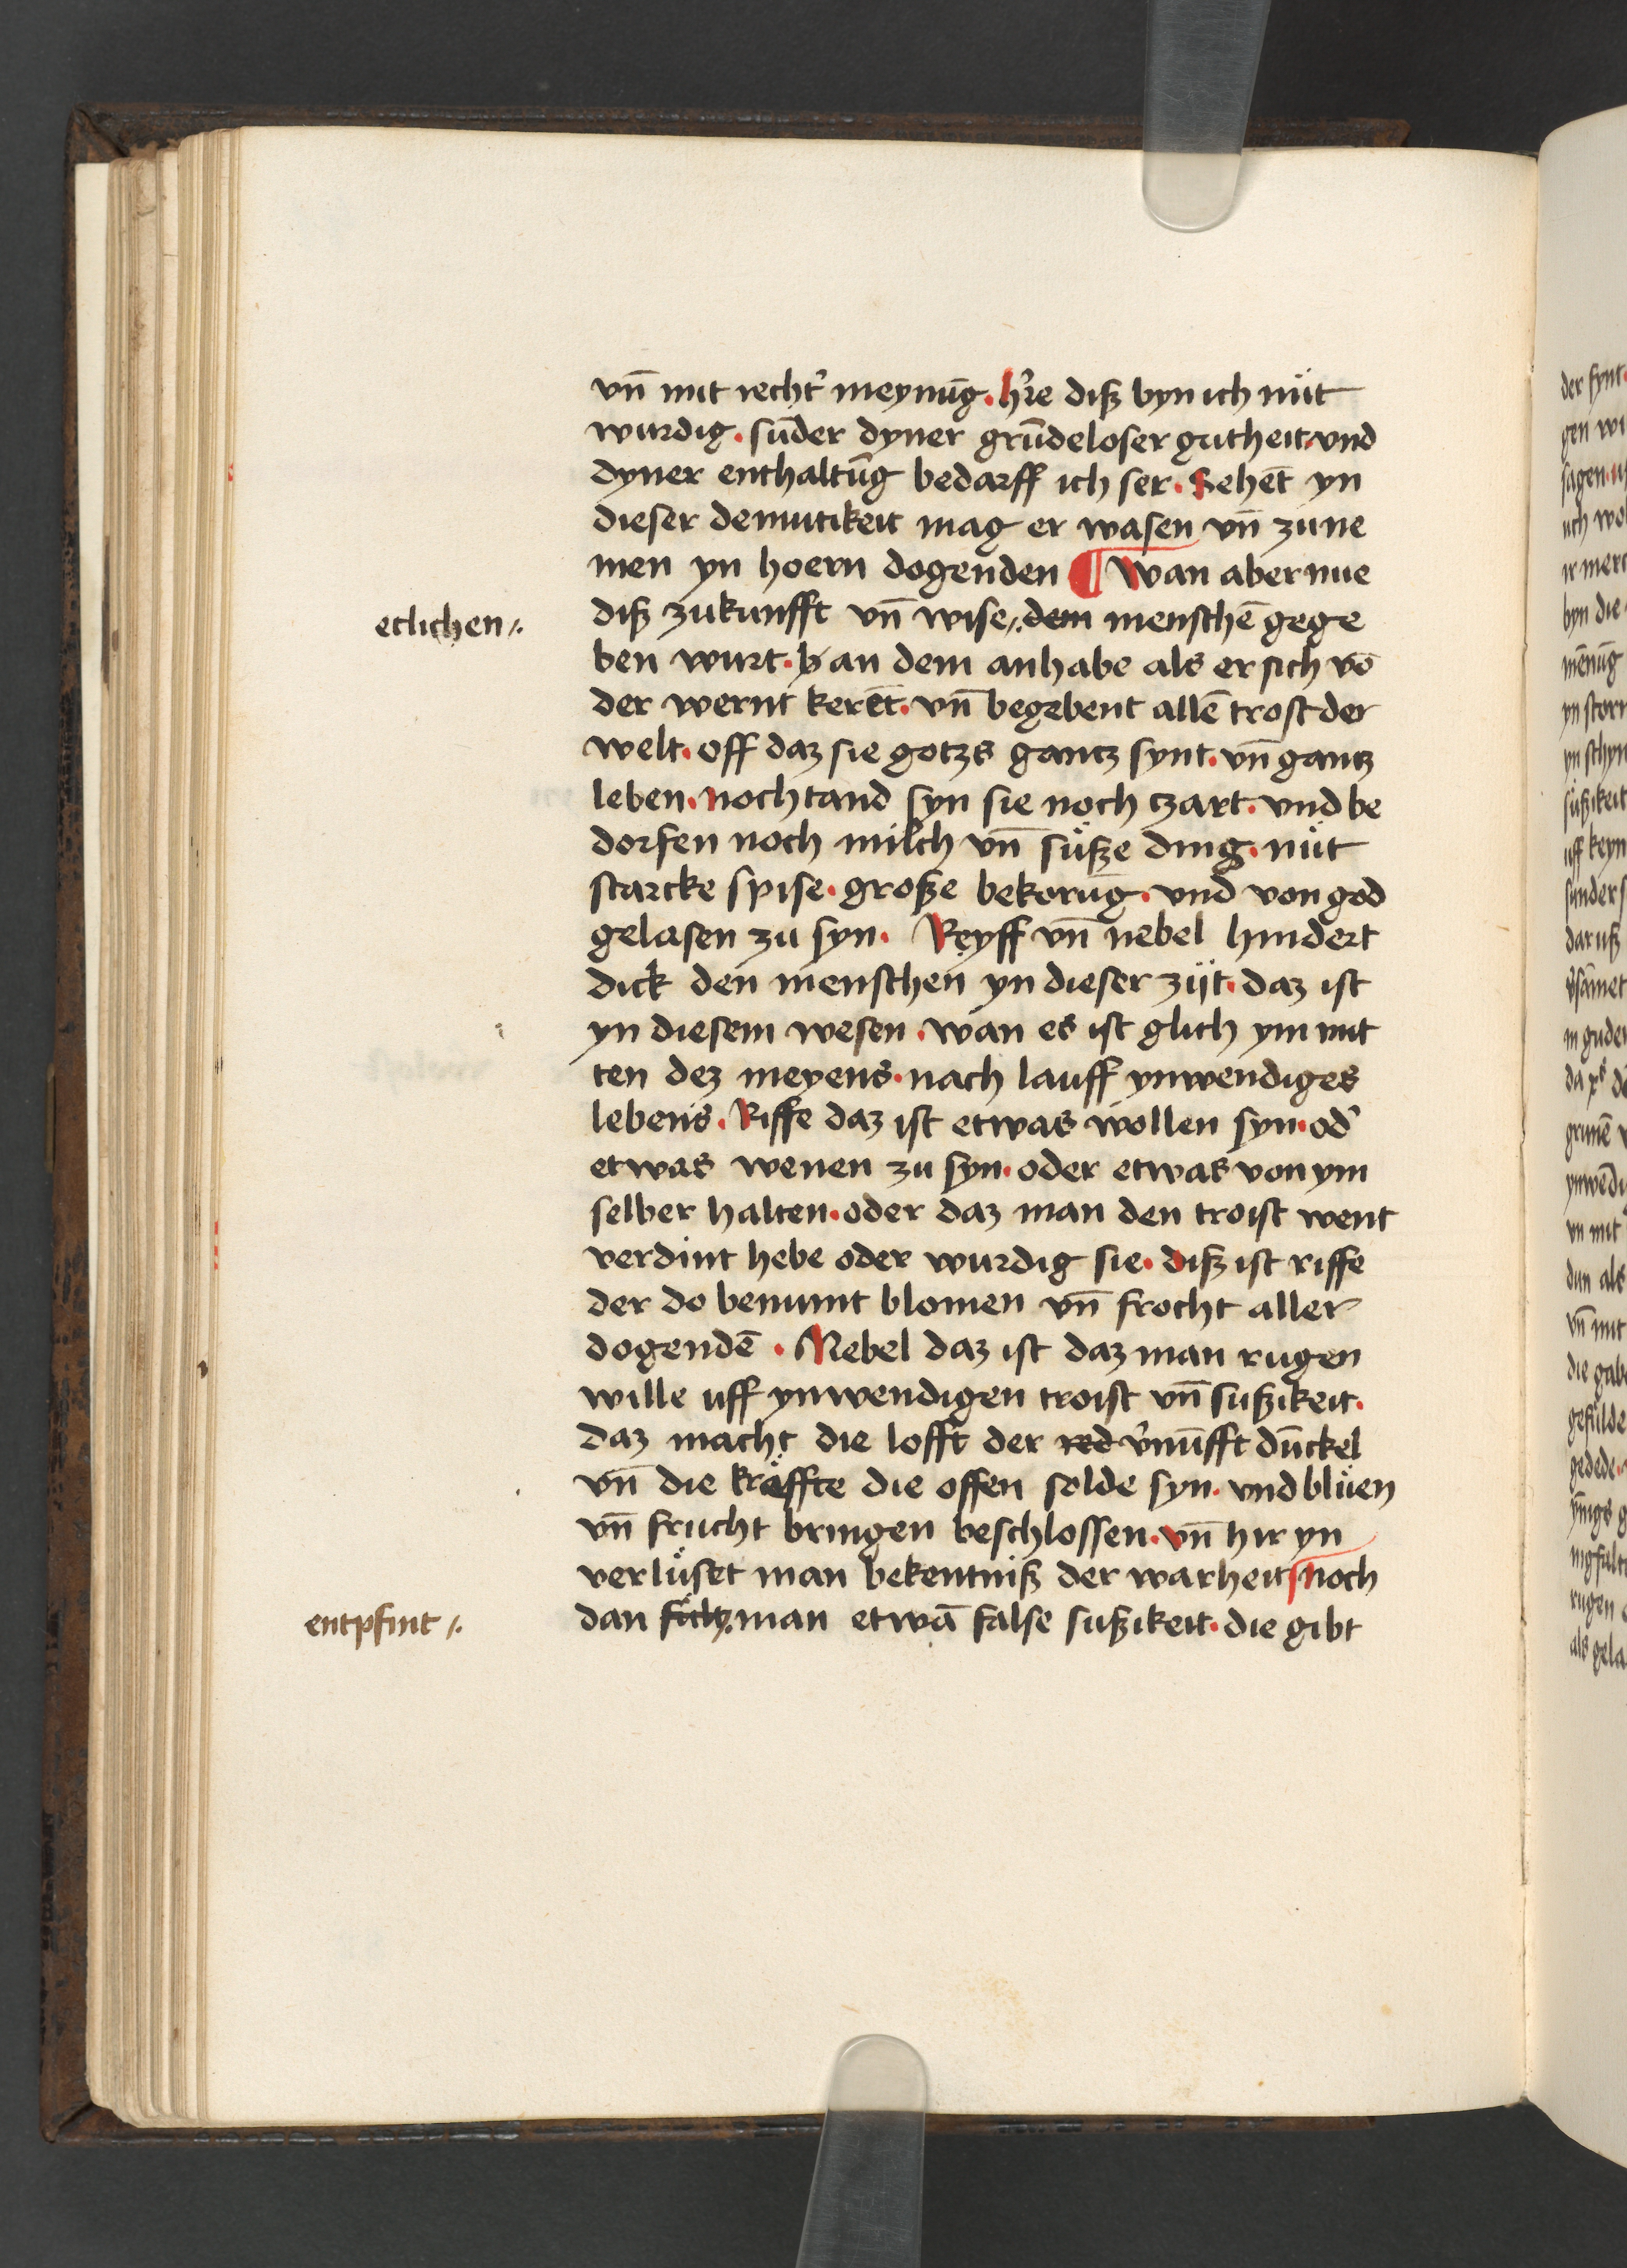 vn̄ mit recht̓ meynūg · hr̓e diß byn ich nüt
wurdig · sūder dyner grūdeloser gutheit · vnd
dyner enthaltūg bedarff ich ser · Sehēt yn
dieser demutikeit mag er wasen vn̄ zu ne
men yn hoern dogenden ¶ Wan aber nue
etlichen ⸓
diß zukunfft vn̄ wise ⸓ dem menschē gege
ben wurt · an dem anhabe als er sich vō
der wernt kerēt · vn̄ begebent allē trost der
welt · off daz sie gotzs gantz synt · vn̄ gantz
leben · noch tand syn sie noch tzart · vnd be
dorfen noch milch vn̄ süße ding · nüt
starcke spise · große bekorūg · vnd von god
gelasen zu syn · Reyff vn̄ nebel hindert
dick den menschen yn dieser zijt · daz ist
yn diesem wesen · wan es ist glich ym mit
ten dez meyens · nach lauff ynwendiges
lebens · Riffe daz ist etwas wollen syn · od̓
etwas wenen zu syn · oder etwas von ym
selber halten · oder daz man den troist went
verdint hebe oder wurdig sie · diß ist riffe
der do benimt blomen vn̄ frocht aller
dogendē · Nebel daz ist daz man rugen
wille uff ynwendigen troist vn̄ sußikeit ·
daz macht die lofft der red v̓nūfft dūckel
vn̄ die kräffte die offen solde syn · vnd blüen
vn̄ frucht bringen beschlossen · vn̄ hir yn
verlüset man bekentniß der warheit noch
entpfint ⸓
dan man etwā false sußikeit · die gibt